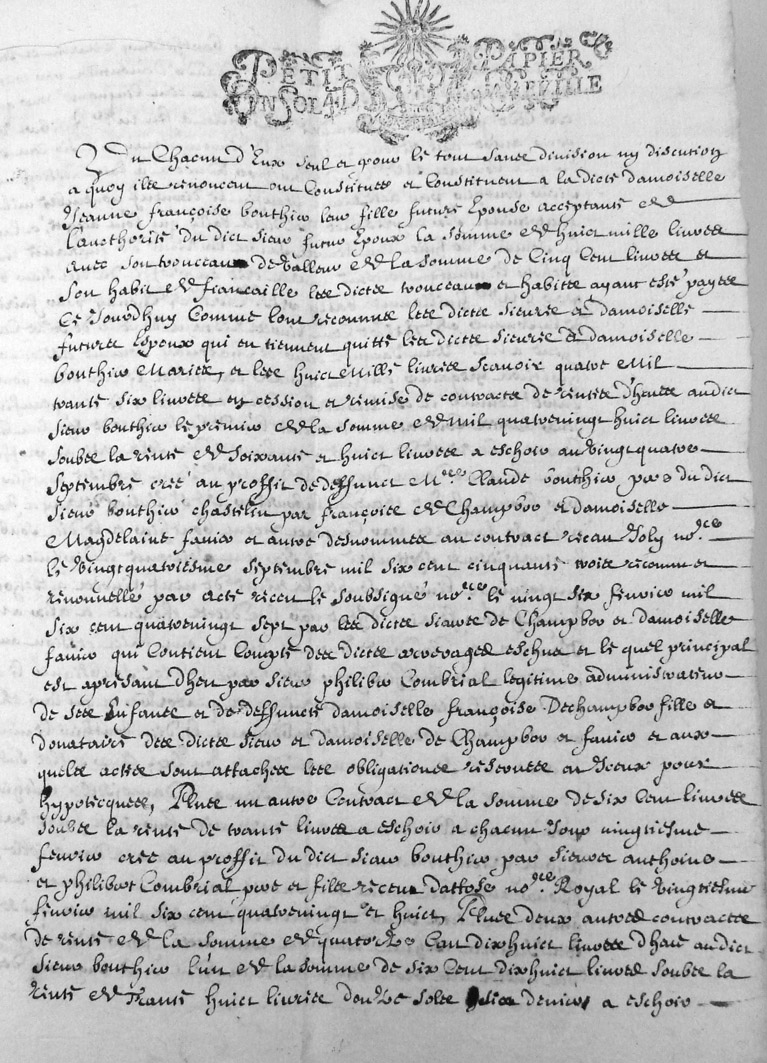 PETIT PAPIER
UN SOL 4 D LA FEVILLE
Et Chacun d'Eux seul et pour le tout sans division ny discution
a quoy ilz renoncent ont Constitués et Constituent a la dicte damoiselle
Jeanne françoise bouthier leur fille future Epouse acceptante de
l'aucthorité du dict sieur futur Epoux la somme de huict mille livres
avec son trouceau de valleur de la somme de Cinq Cent livres et
son habit de fiancaille les dictes trouceau et habits ayant esté payés
Ce Jourdhuy Comme l'ont reconnus les dicts sieurs et damoiselle
futures Epoux qui en tiennent quitte les dicts sieurs et damoiselle
bouthier Mariés, et les huict Mille livres scavoir quatre Mil
trante six livres en cession et remise de contracts de rentes dheues audict
sieur bouthier le premier de la somme de Mil quatrevingt huict livres
soubs la rente de soixante et huict livres a eschoir au vingtquatre
Septembre creé au proffit de deffunct Mre Claude bouthier pere du dict
sieur bouthier chastelin par françois de Champbor et damoiselle
Magdelaine favier et autre desnommés au contract receu Joly nore
le vingtquatriesme septembre mil six cent cinquante trois reconnu et
renouvellé par acte receu le soubsigné nore le vingt six fevrier mil
six cent quatrevingt sept par les dicts sieurs de Champbor et damoiselle
favier qui Contient Compte des dicts arrerages escheus et le quel principal
est apresant dheu par sieur philibert Combrial legitime administrateur
de ses Enfants et de deffuncte damoiselle françoise Dechampbor fille et
donataire des dicts sieur et damoiselle de Champbor et favier et aux
quels actes sont attachés les obligations rescouses ar Iceux pour
hypotecques, Plus un autre Contract de la somme de six Cent livres
soubs la rente de trante livres a eschoir a chacun Jour vingtiesme
fevrier creé au proffit du dict sieur bouthier par sieurs anthoine
et philibert Combrial pere et fils receu dattose nore Royal le vingtiesme
fevrier mil six cent quatrevingt et huict, Plus deux autres contracts
de rente de la somme de quatorze Cent dixhuict livres dheue audict
sieur bouthier l'un de la somme de six Cent dixhuict livres soubs la
rente de Trante huict livres douze sols six deniers a eschoir